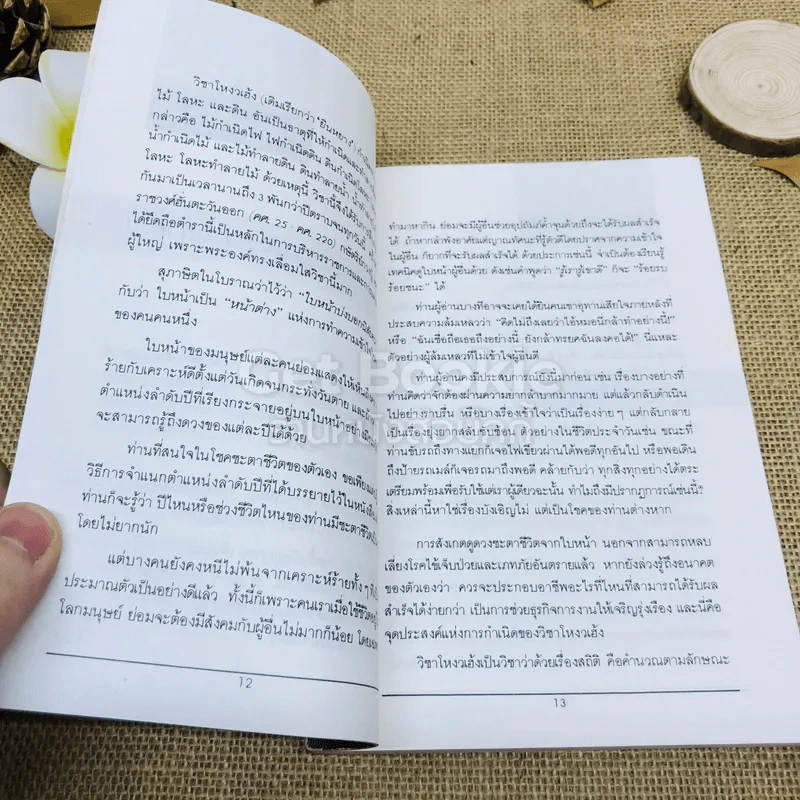 วิชาโหงวเฮ้ง (เดิมเรียกว่า "ยืนหยาง")
ไม้ โลหะ และดิน อันเป็นธาตุที่ให้กำเนิดและ
กล่าวคือ ไม้กำเนิดไฟ ไฟกำเนิดดิน ดินกำเนิด
น้ำกำเนิดไม้ และไม้ทำลายดิน ดินทำลายน้ำ
โลหะ โลหะทำลายไม้ ด้วยเหตุนี้ วิชานี้จึงได้รับ
กันมาเป็นเวลานานถึง 3 พันกว่าปีตราบจนทุกวันนี้
ราชวงศ์ฮั่นตะวันออก (คศ. 25 - คศ. 220) กษัตริย์
ได้ยึดถือตำรานี้เป็นหลักในการบริหารราชการและ
ผู้ใหญ่ เพราะพระองค์ทรงเลื่อมใสวิชานี้มาก
สุภาษิตในโบราณว่าไว้ว่า "ใบหน้าบ่งบอก
กับว่า ใบหน้าเป็น "หน้าต่าง" แห่งการทำความเข้าใจ
ของคนคนหนึ่ง
ใบหน้าของมนุษย์แต่ละคนย่อมแสดงให้เห็น
ร้ายกับเคราะห์ดีตั้งแต่วันเกิดจนกระทั่งวันตาย และ
ตำแหน่งลำดับปีที่เรียงกระจายอยู่บนใบหน้าอย่าง
จะสามารถรู้ถึงดวงของแต่ละปีได้ด้วย
ท่านที่สนใจในโชคชะตาชีวิตของตัวเอง ขอเพียง
วิธีการจำแนกตำแหน่งลำดับปีที่ได้บรรยายไว้ในหนังสือ
ท่านก็จะรู้ว่า ปีไหนหรือช่วงชีวิตไหนของท่านมีชะตาชีวิต
โดยไม่ยากนัก
แต่บางคนยังคงหนีไม่พ้นจากเคราะห์ร้ายทั้ง ๆ ที่
ประมาณตัวเป็นอย่างดีแล้ว ทั้งนี้ก็เพราะคนเราเมื่อใช้ชีวิต
โลกมนุษย์ ย่อมจะต้องมีสังคมกับผู้อื่นไม่มากก็น้อย
12
ทำมาหากิน ย่อมจะมีผู้อื่นช่วยอุปถัมภ์ค้ำจุนด้วยถึงจะได้รับผลสำเร็จ
ได้ ถ้าหากลำพังอาศัยแต่ญาณทัศนะที่รู้ตัวดีโดยปราศจากความเข้าใจ
ในผู้อื่น ก็ยากที่จะรับผลสำเร็จได้ ด้วยประการเช่นนี้ จำเป็นต้องเรียนรู้
เทคนิคดูใบหน้าผู้อื่นด้วย ดังเช่นคำพูดว่า "รู้เรารู้เขาดี" ก็จะ "ร้อยรบ
ร้อยชนะ" ได้
ท่านผู้อ่านบางทีอาจจะเคยได้ยินคนเขาอุทานเสียใจภายหลังที่
ประสบความล้มเหลวว่า "คิดไม่ถึงเลยว่าไอ้หมอนี่กล้าทำอย่างนี้!"
หรือ "ฉันเชื่อถือเธอถึงอย่างนี้ ยังกล้าทรยศฉันลงคอได้!" นี่แหละ
ตัวอย่างผู้ล้มเหลวที่ไม่เข้าใจผู้อื่นดี
ท่านผู้อ่านคงมีประสบการณ์ยังนี้มาก่อน เช่น เรื่องบางอย่างที่
ท่านคิดว่าจักต้องผ่านความยากลำบากมากมาย แต่แล้วกลับดำเนิน
ไปอย่างราบรื่น หรือบางเรื่องเข้าใจว่าเป็นเรื่องง่าย ๆ แต่กลับกลาย
เป็นเรื่องยุ่งยากสลับซับซ้อน ตัวอย่างในชีวิตประจำวันเช่น ขณะที่
ท่านขับรถถึงทางแยกก็เจอไฟเขียวผ่านได้พอดีทุกอันไป หรือพอเดิน
ถึงป้ายรถเมล์ก็เจอรถมาถึงพอดี คล้ายกับว่า ทุกสิ่งทุกอย่างได้ตระ
เตรียมพร้อมเพื่อรับใช้แต่เราผู้เดียวฉะนั้น ทำไมถึงมีปรากฏการณ์เช่นนี้?
สิ่งเหล่านี้หาใช่เรื่องบังเอิญไม่ แต่เป็นโชคของท่านต่างหาก
การสังเกตดูดวงชะตาชีวิตจากใบหน้า นอกจากสามารถหลบ
เลี่ยงโรคใช้เจ็บป่วยและเภทภัยอันตรายแล้ว หากยังล่วงรู้ถึงอนาคต
ของตัวเองว่า ควรจะประกอบอาชีพอะไรที่ไหนที่สามารถได้รับผล
สำเร็จได้ง่ายกว่า เป็นการช่วยธุรกิจการงานให้เจริญรุ่งเรือง และนี่คือ
จุดประสงค์แห่งการกำเนิดของวิชาโหงวเฮ้ง
วิชาโหงวเฮ้งเป็นวิชาว่าด้วยเรื่องสถิติ คือคำนวณตามลักษณะ
13
Get Bookie